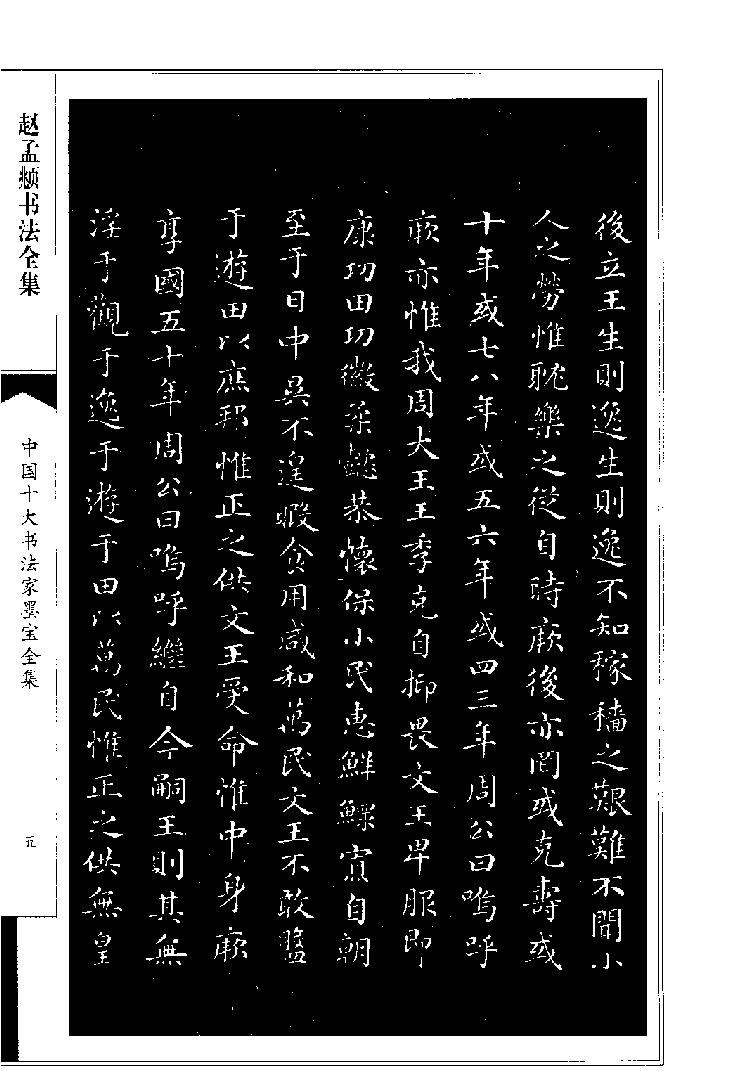 赵孟頫书法全集
中国十大书法家墨宝全集
五
後立王生則逸生則逸不知稼穡之艱難不聞小
人之勞惟耽樂之從自時厥後亦罔或克壽或
十年或七八年或五六年或四三年周公曰嗚呼
厥亦惟我周大王王季克自抑畏文王卑服即
康功田功徽柔懿恭懷保小民惠鮮鰥寡自朝
至于日中昃不遑暇食用咸和萬民文王不敢盤
于遊田以庶邦惟正之供文王受命惟中身厥
享國五十年周公曰嗚呼繼自今嗣王則其無
淫于觀于逸于遊于田以萬民惟正之供無皇